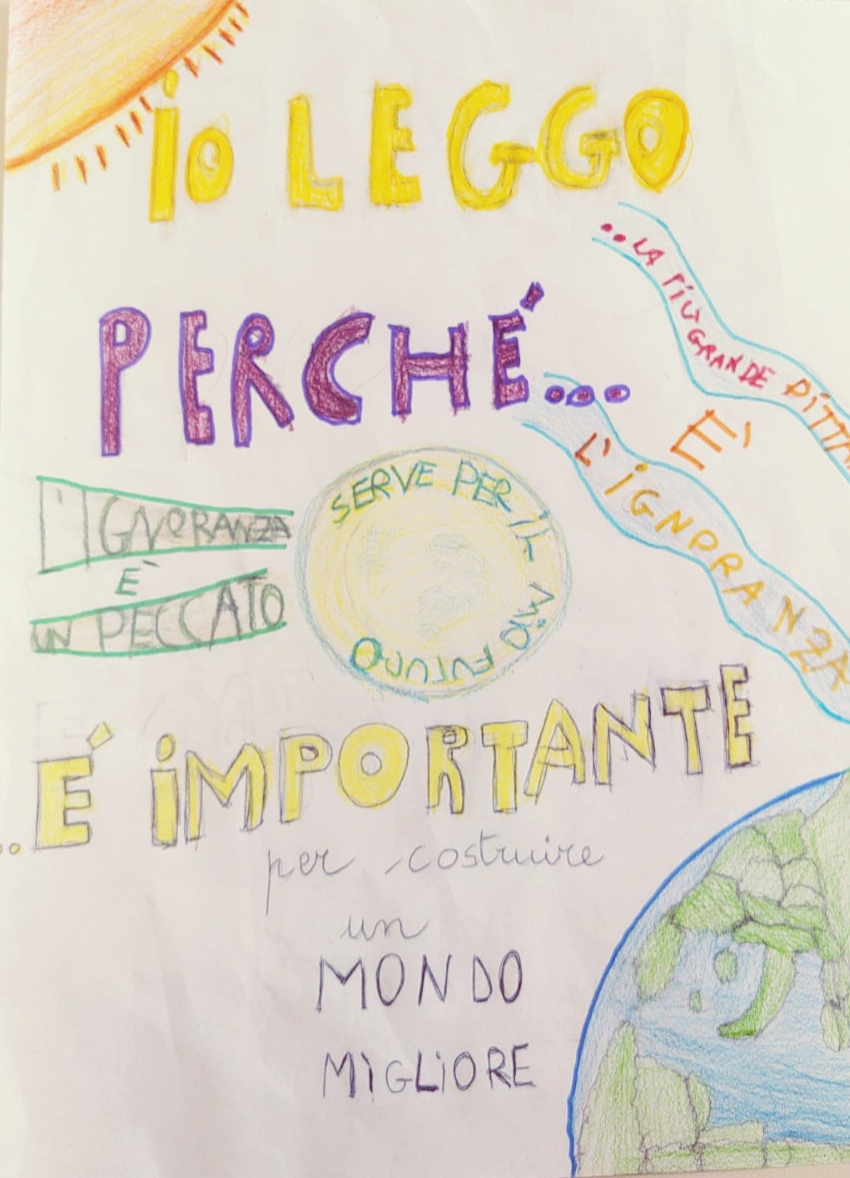 iO LEGGO
PERCHE'...
..LA PIÙ GRANDE DITTA
E'
L'IGNORANZA
L'IGNORANZA
È
UN PECCATO
SERVE PER iL MiO FUTURO
..E' iMPORTANTE
per costruire
un
MONDO
MIGLiORE